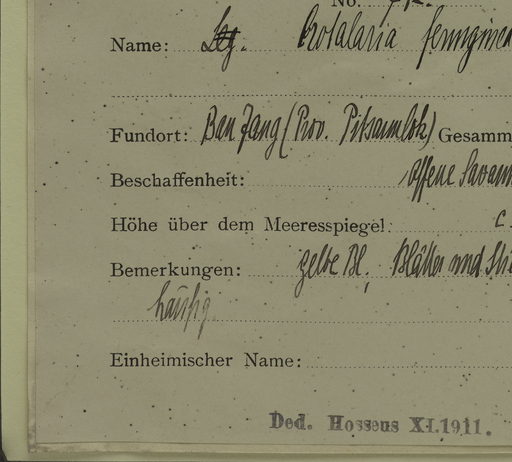 No.
Name: Leg. Crotalaria ferruginea
Fundort: Ban Jang (Prov. Pitsanulok) Gesamm
Beschaffenheit: offene Savann
Höhe über dem Meeresspiegel: c.
Bemerkungen: gelbe Bl. Blätter und Sti
häufig
Einheimischer Name:
Ded. Hosseus XI.1911.